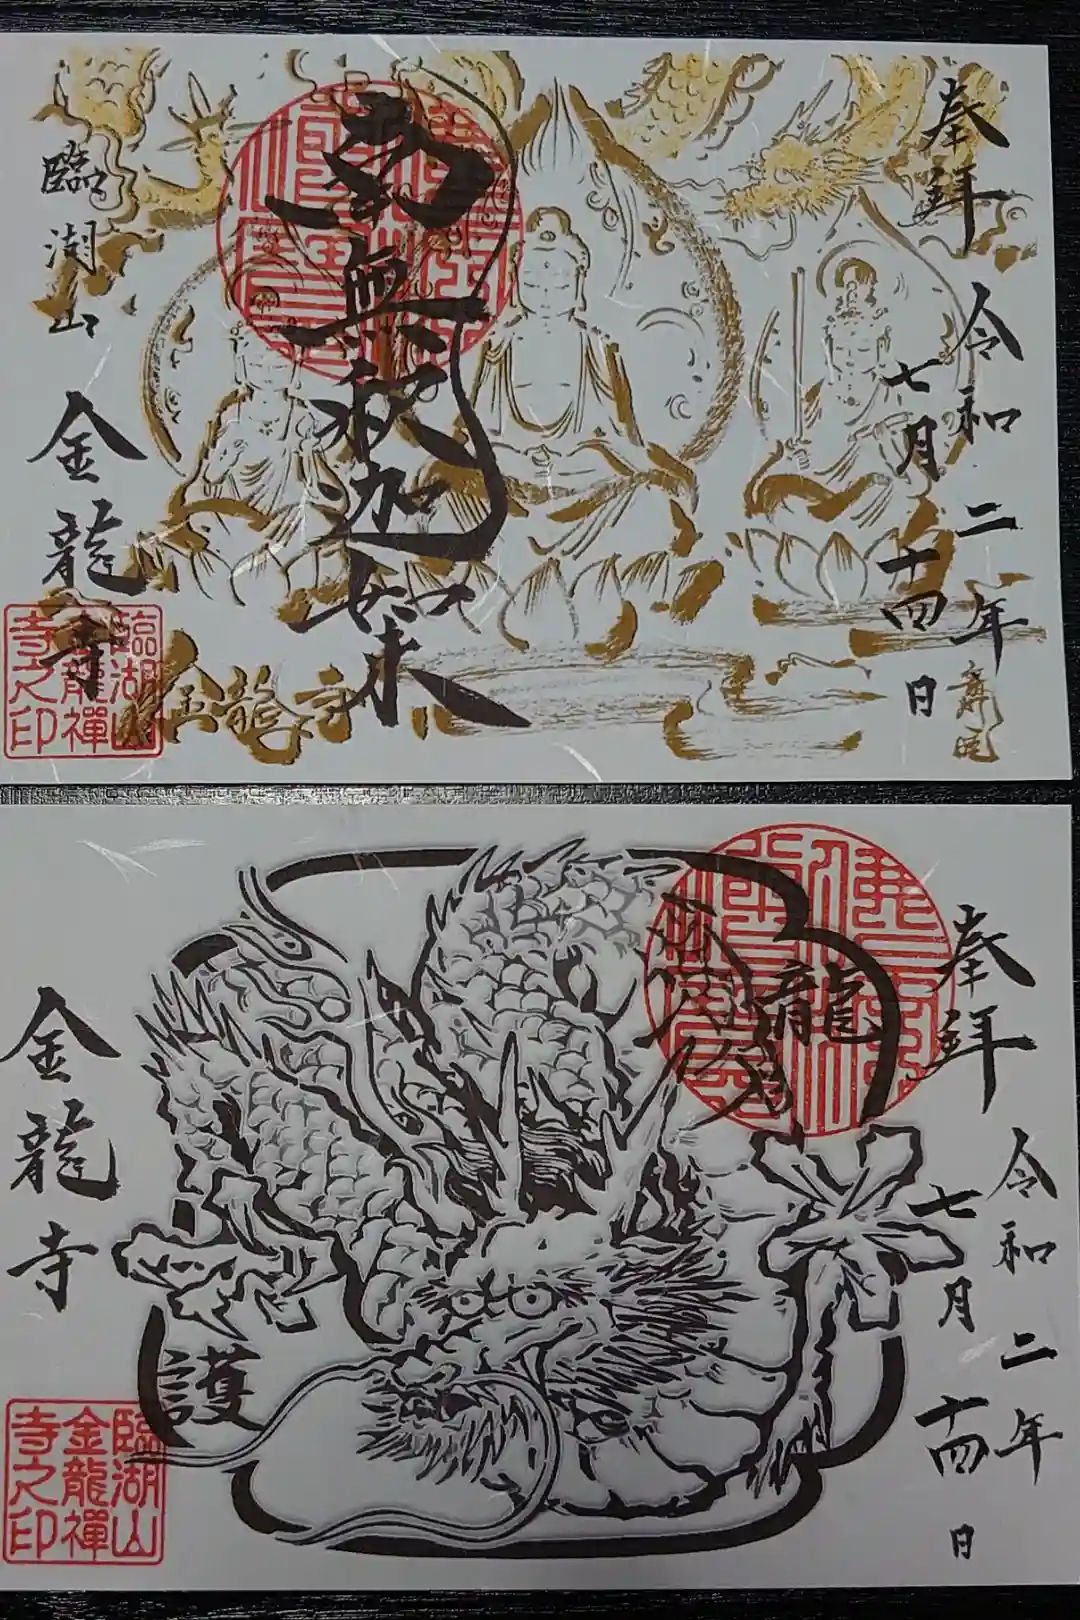 奉拜
令和二年
七月二十四日
南無釈迦如来
臨湖山
金龍寺
臨湖山
金龍禪
寺之印
金龍寺
奉拜
令和二年
七月二十四日
龍
護
金龍寺
臨湖山
金龍禪
寺之印